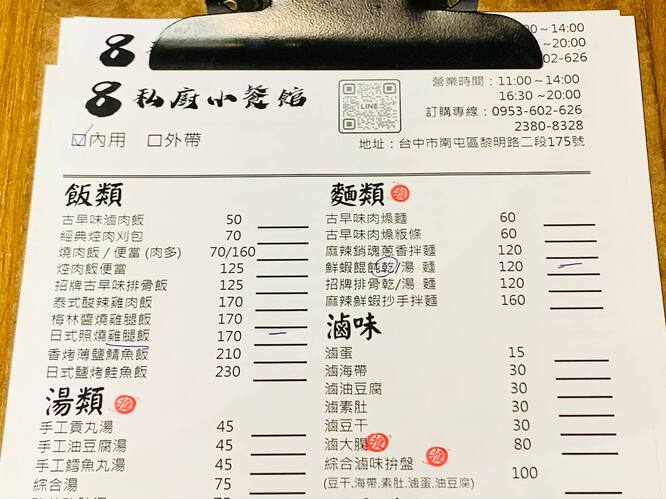 00～14:00
～20:00
602-626
8 私廚小餐館
LINE
營業時間：11:00～14:00
16:30～20:00
訂購專線：0953-602-626
2380-8328
地址：台中市南屯區黎明路二段175號
☑內用 ☐外帶
飯類
古早味滷肉飯 50
經典焢肉刈包 70
燒肉飯/便當(肉多) 70/160
焢肉飯便當 125
招牌古早味排骨飯 125
泰式酸辣雞肉飯 170
梅林醬燒雞腿飯 170
日式照燒雞腿飯 170
香烤薄鹽鯖魚飯 210
日式鹽烤鮭魚飯 230
湯類
手工貢丸湯 45
手工油豆腐湯 45
手工鱈魚丸湯 45
綜合湯 75
麵類
古早味肉燥麵 60
古早味肉燥粄條 60
麻辣銷魂蔥香拌麵 120
鮮蝦餛飩乾/湯 麵 120
招牌排骨乾/湯 麵 120
麻辣鮮蝦抄手拌麵 160
滷味
滷蛋 15
滷海帶 30
滷油豆腐 30
滷素肚 30
滷豆干 30
滷大腸 80
綜合滷味拼盤 100
(豆干,海帶,素肚,滷蛋,油豆腐)